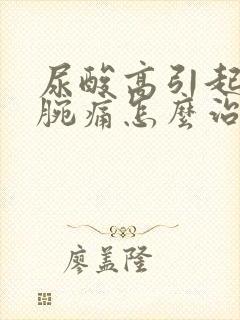 尿酸高引起
腕痛怎麼治
廖盖隆